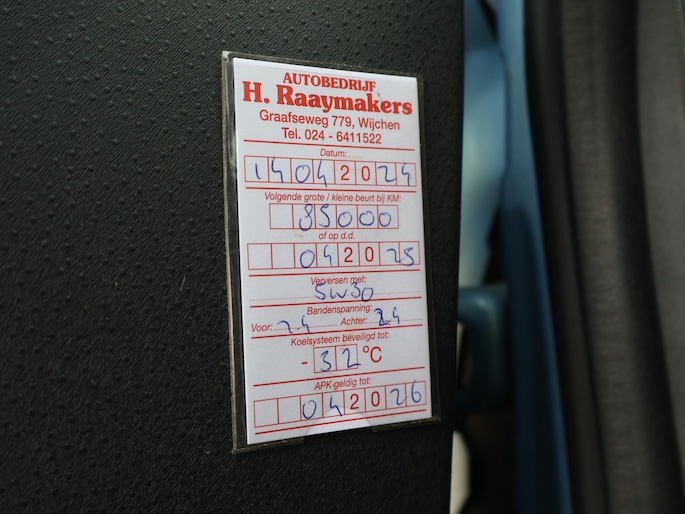 AUTOBEDRIJF
H. Raaymakers
Graafseweg 779, Wijchen
Tel. 024 - 6411522
Datum:
14042024
Volgende grote / kleine beurt bij KM:
85000
of op d.d.
042025
Verversen met:
5W30
Bandenspanning:
Voor: 2.4 Achter: 2.4
Koelsysteem beveiligd tot:
- 32 °C
APK-geldig tot:
042026